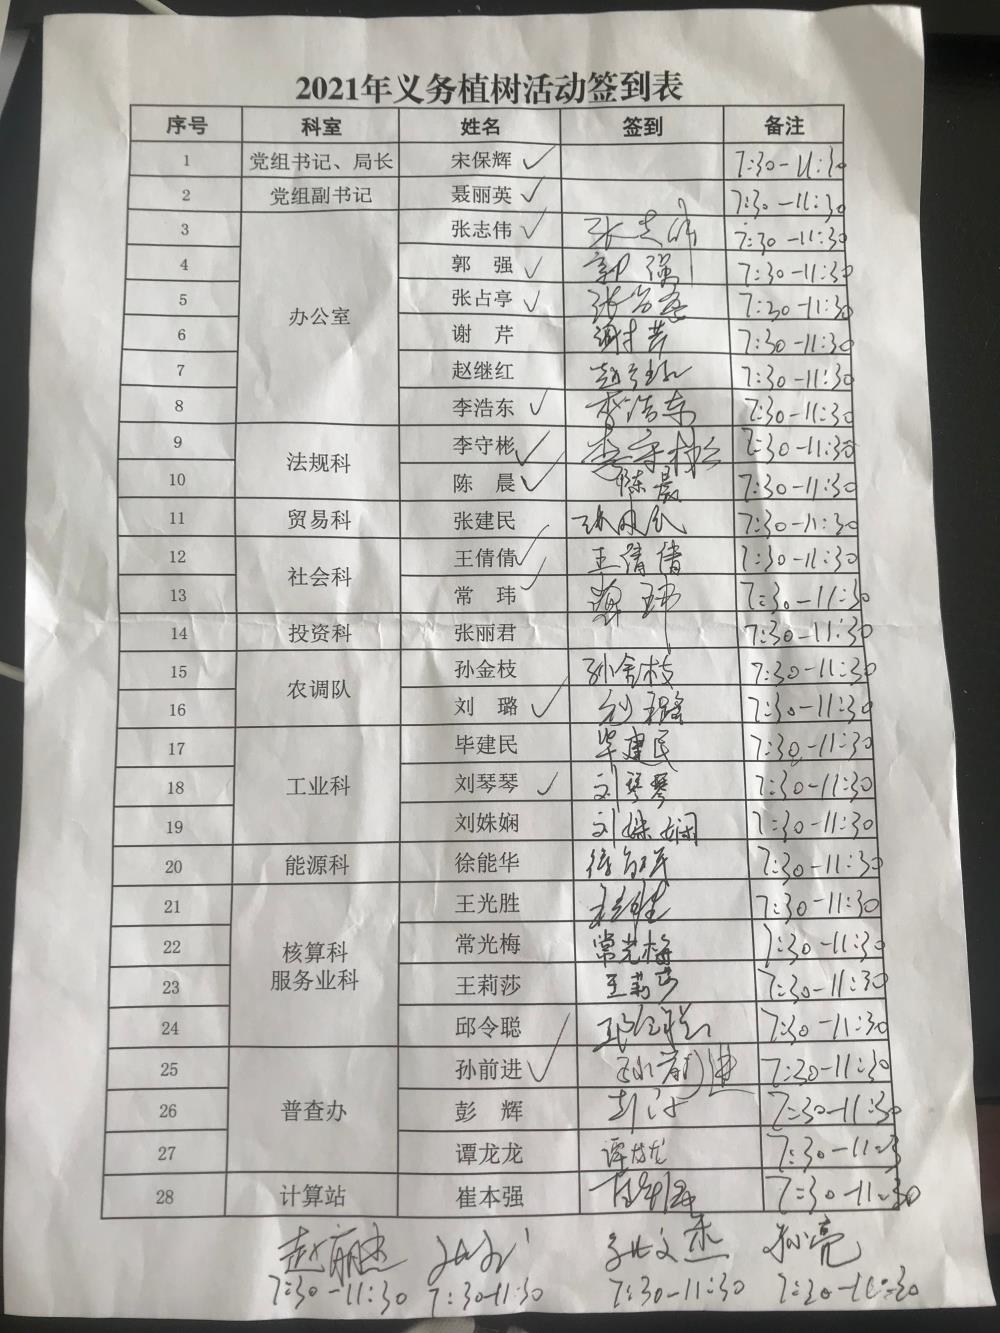 2021年义务植树活动签到表
序号 科室 姓名 签到 备注
1 党组书记、局长 宋保辉 ✓ 7:30-11:30
2 党组副书记 聂丽英 ✓ 7:30-11:30
3 办公室 张志伟 ✓ 张志伟 7:30-11:30
4 郭 强 ✓ 郭强 7:30-11:30
5 张占亭 ✓ 张占亭 7:30-11:30
6 谢 芹 谢芹 7:30-11:30
7 赵继红 赵继红 7:30-11:30
8 李浩东 ✓ 李浩东 7:30-11:30
9 法规科 李守彬 ✓ 李守彬 7:30-11:30
10 陈 晨 ✓ 陈晨 7:30-11:30
11 贸易科 张建民 张建民 7:30-11:30
12 社会科 王倩倩 ✓ 王倩倩 7:30-11:30
13 常 玮 ✓ 常玮 7:30-11:30
14 投资科 张丽君 7:30-11:30
15 农调队 孙金枝 孙金枝 7:30-11:30
16 刘 璐 ✓ 刘璐 7:30-11:30
17 工业科 毕建民 毕建民 7:30-11:30
18 刘琴琴 ✓ 刘琴琴 7:30-11:30
19 刘姝娴 刘姝娴 7:30-11:30
20 能源科 徐能华 7:30-11:30
21 核算科 王光胜 王光胜 7:30-11:30
22 服务业科 常光梅 常光梅 7:30-11:30
23 王莉莎 王莉莎 7:30-11:30
24 邱令聪 邱令聪 7:30-11:30
25 普查办 孙前进 ✓ 孙前进 7:30-11:30
26 彭 辉 7:30-11:30
27 谭龙龙 谭龙龙 7:30-11:3
28 计算站 崔本强 崔本强 7:30-11:30
赵丽 孙文杰 孙亮
7:30-11:30 7:30-11:30 7:30-11:30 7:30-11:30